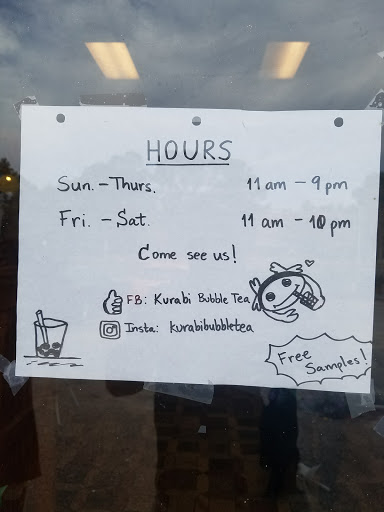 HOURS
Sun. - Thurs. 11 am - 9 pm
Fri. - Sat. 11 am - 10 pm
Come see us!
FB: Kurabi Bubble Tea
Insta: kurabibubbletea
Free Samples!